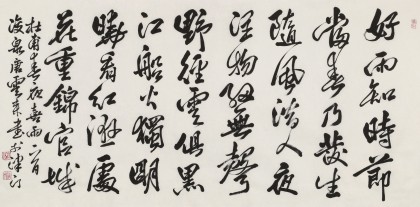 好雨知時節
當春乃發生
隨風潛入夜
潤物細無聲
野徑雲俱黑
江船火獨明
曉看紅濕處
花重錦官城
杜甫春夜喜雨一首
唐雲來書於津門